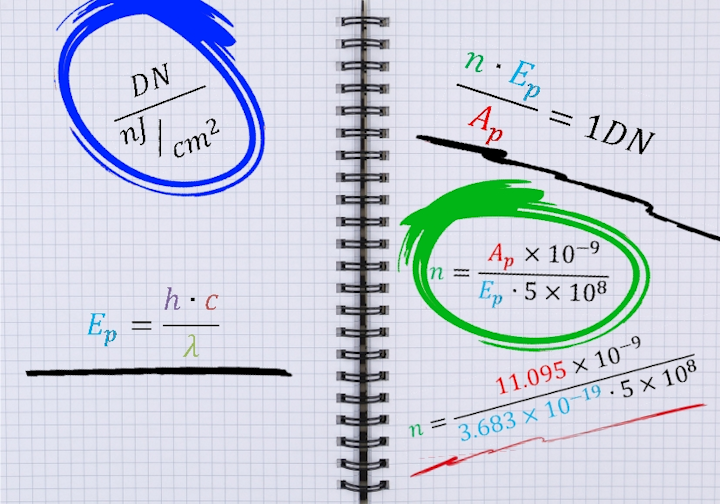 DN
nJ / cm²
E_p = h · c
λ
n · E_p
A_p = 1DN
n = A_p × 10⁻⁹
E_p · 5 × 10⁸
n = 11.095 × 10⁻⁹
3.683 × 10⁻¹⁹ · 5 × 10⁸